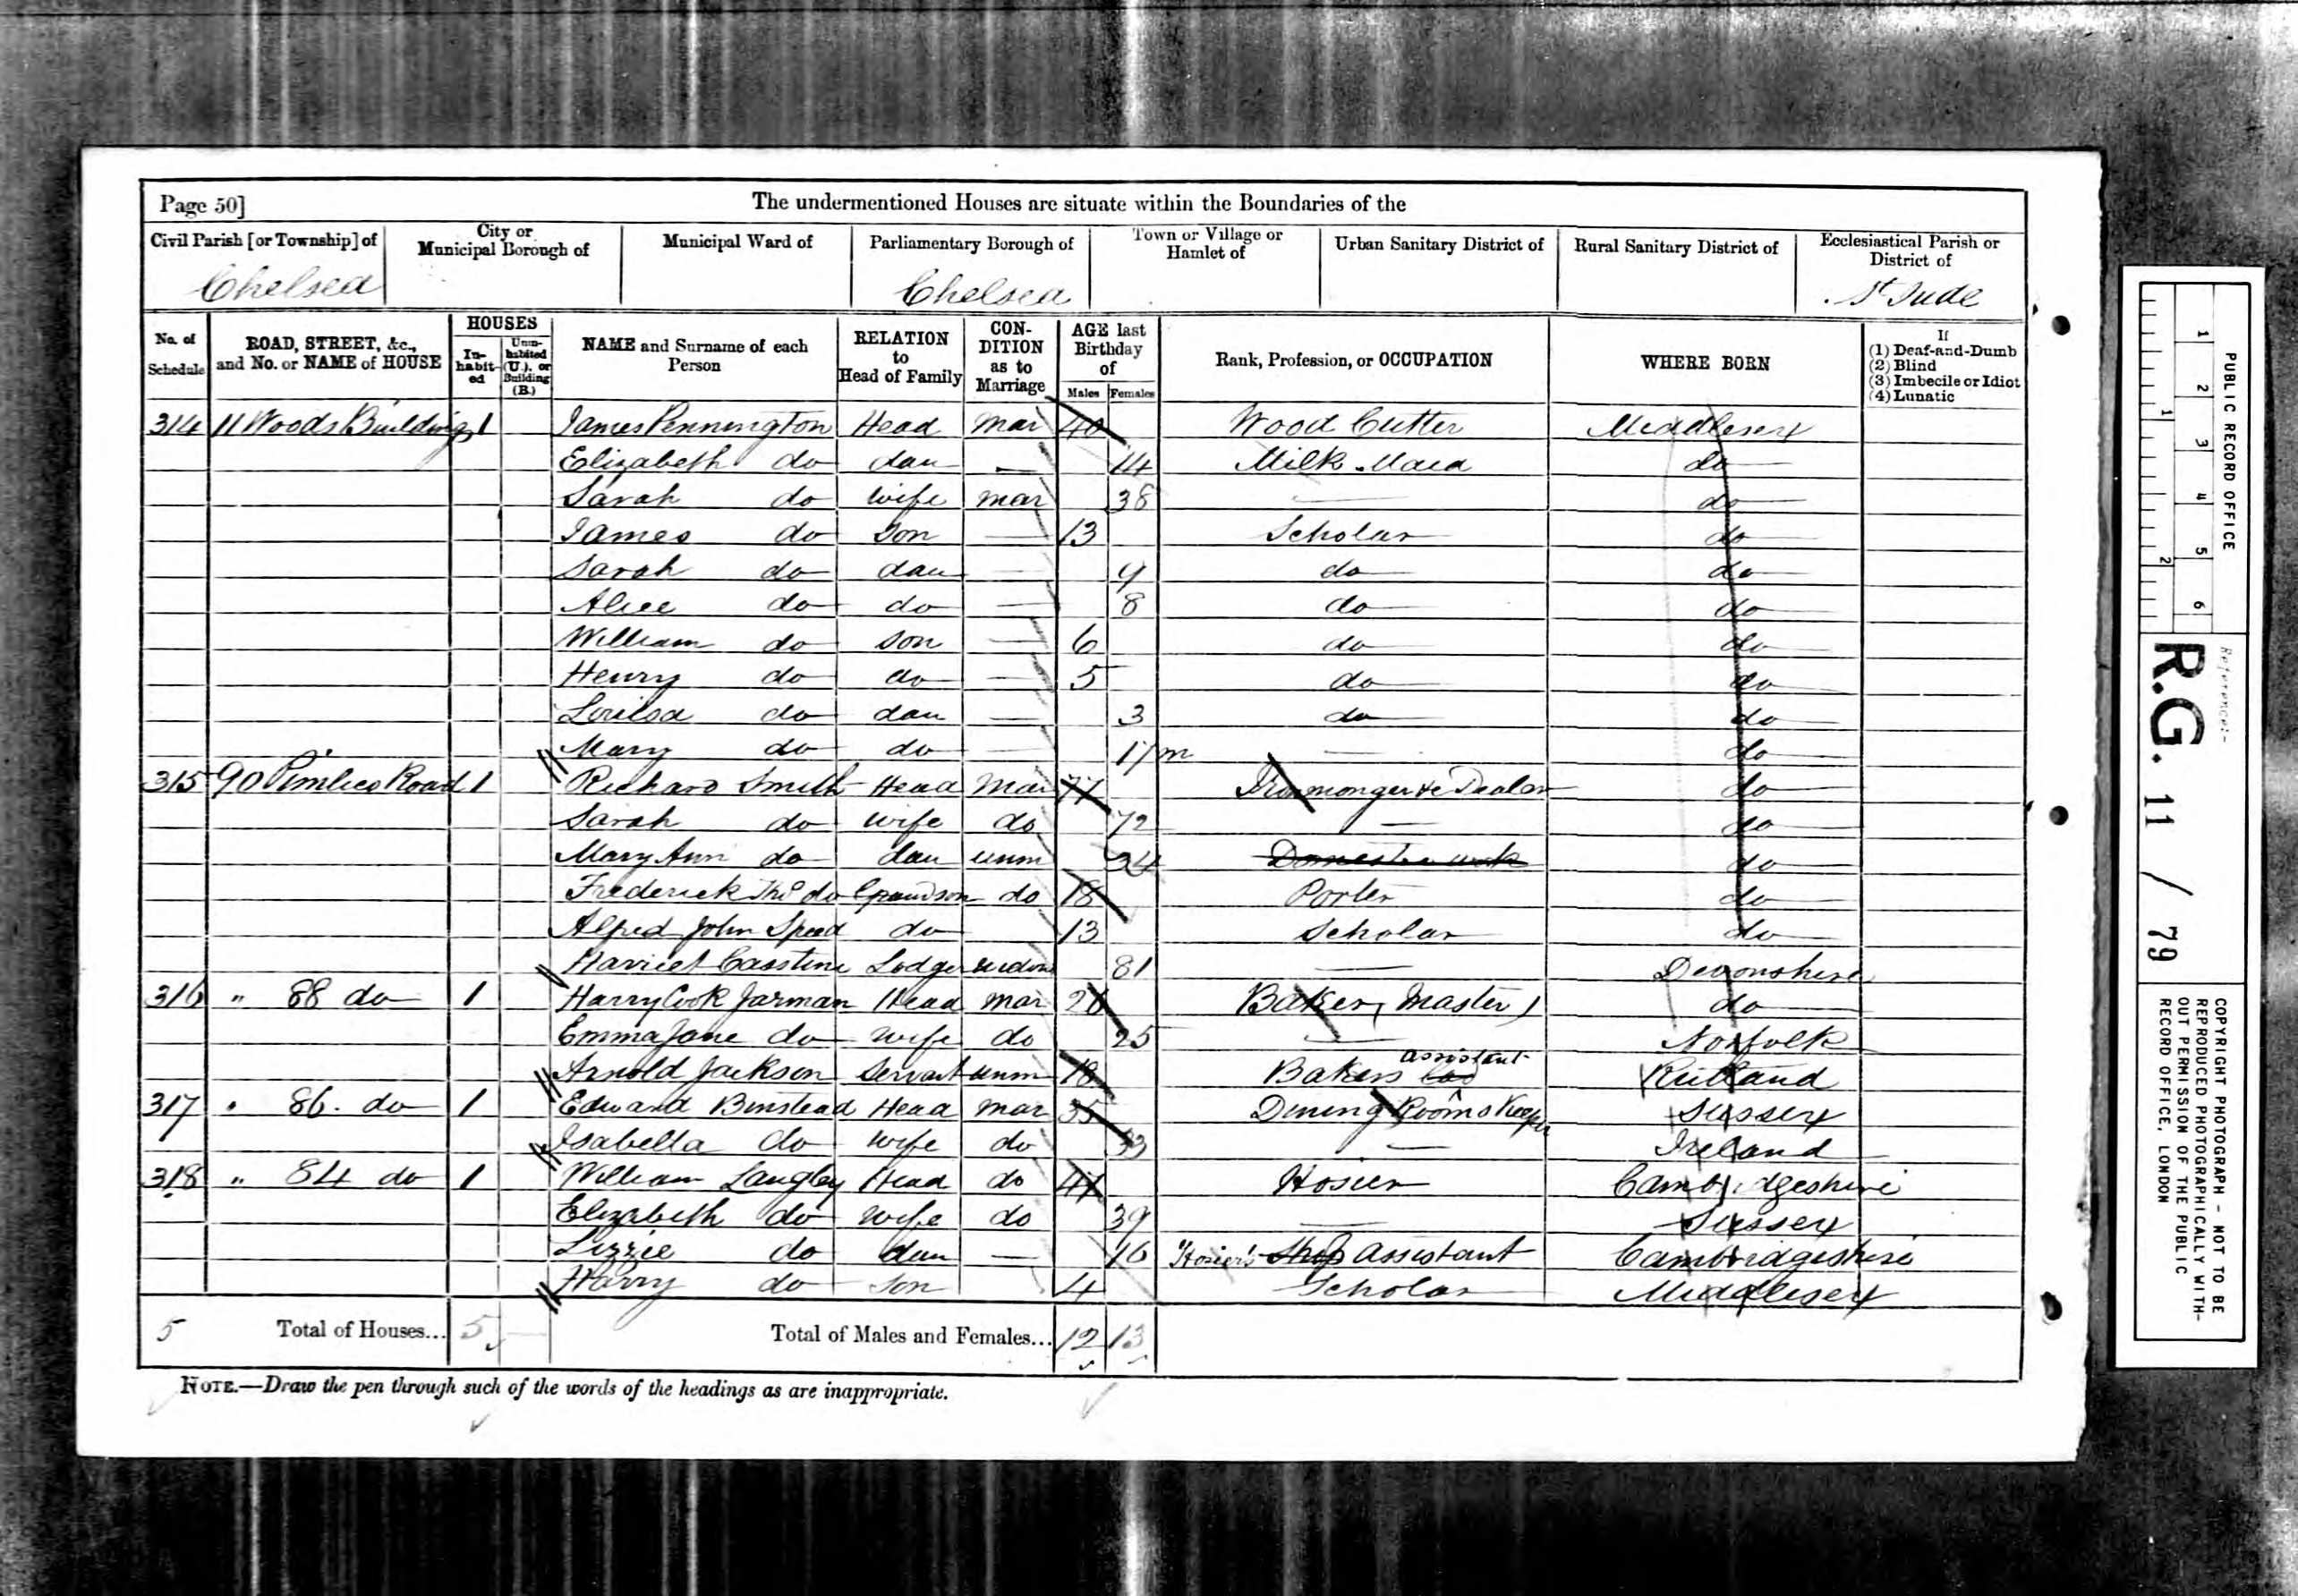 Page 50] The undermentioned Houses are situate within the Boundaries of the
Civil Parish [or Township] of City or Municipal Borough of Municipal Ward of Parliamentary Borough of Town or Village or Hamlet of Urban Sanitary District of Rural Sanitary District of Ecclesiastical Parish or District of
Chelsea Chelsea St Jude
No. of Schedule ROAD, STREET, &c., and No. or NAME of HOUSE HOUSES In-habit-ed Unin-habited (U.), or Building (B.) NAME and Surname of each Person RELATION to Head of Family CON-DITION as to Marriage AGE last Birthday of Males Females Rank, Profession, or OCCUPATION WHERE BORN If (1) Deaf-and-Dumb (2) Blind (3) Imbecile or Idiot (4) Lunatic
314 11 Woods Buildings 1 James Pennington Head mar 40 Wood Cutter Middlesex
Elizabeth do dau — 14 Milk Maid do
Sarah do wife mar 38 — do
James do son — 13 Scholar do
Sarah do dau — 9 do do
Alice do do — 8 do do
William do son — 6 do do
Henry do do — 5 do do
Louisa do dau — 3 do do
Mary do do — 17 m — do
315 90 Pimlico Road 1 Richard Smith Head Mar 77 Ironmonger &c Dealer do
Sarah do wife do 72 — do
Mary Ann do dau unm 34 do
Frederick Thos do Grandson do 18 Porter do
Alfred John Speed do 13 Scholar do
Harriet Casstine Lodger widow 81 — Devonshire
316 " 88 do 1 Harry Cook Jarman Head mar 26 Baker (Master) do
Emma Jane do wife do 25 — Norfolk
Arnold Jackson Servant unm 18 Bakers assistant Rutland
317 " 86 do 1 Edward Binstead Head mar 35 Dining Rooms Keeper Sussex
Isabella do wife do 33 — Ireland
318 " 84 do 1 William Langley Head do 41 Hosier Cambridgeshire
Elizabeth do wife do 39 — Sussex
Lizzie do dau — 16 "Hosier's Shop assistant Cambridgeshire
Harry do son 4 Scholar Middlesex
5 Total of Houses... 5 Total of Males and Females... 12 13
NOTE.—Draw the pen through such of the words of the headings as are inappropriate.
PUBLIC RECORD OFFICE
1 2 3 4 5 6
1 2
Reference:-
R.G. 11 / 79
COPYRIGHT PHOTOGRAPH - NOT TO BE
REPRODUCED PHOTOGRAPHICALLY WITH-
OUT PERMISSION OF THE PUBLIC
RECORD OFFICE, LONDON